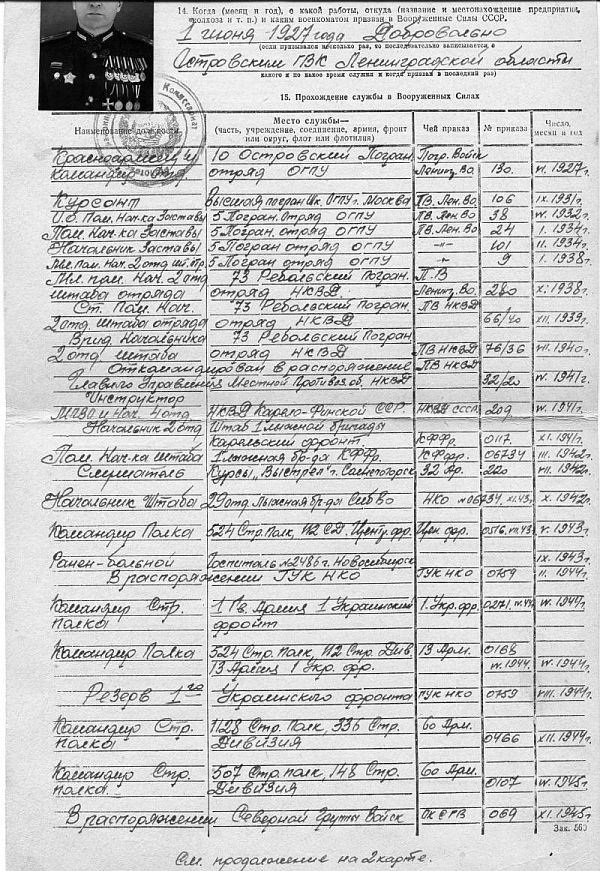 14. Когда (месяц и год), с какой работы, откуда (название и местонахождение предприятия,
колхоза и т. п.) и каким военкоматом призван в Вооруженные Силы СССР.
1 июня 1927 года Добровольно
(если призывался несколько раз, то последовательно записывается, с
Островским ГВК Ленинградской области
какого и по какое время служил и когда призван в последний раз)
15. Прохождение службы в Вооруженных Силах
Наименование должности
Место службы— (часть, учреждение, соединение, армия, фронт или округ, флот или флотилия)
Чей приказ
№ приказа
Число, месяц и год
Красноармеец и 10 Островский Погран. Погр. Войск
Командир Отд. отряд ОГПУ Ленинг. Во. 130. VI. 1927г.
Курсант Высшая погран Шк. ОГПУ г. Москва ПВ. Лен. Во 106 IX. 1931г.
И.д. Пом. Нач-ка Заставы 5 Погран. Отряд ОГПУ ПВ. Лен. Во 38 IV. 1932г.
Пом. Нач-ка Заставы 5 Погран. Отряд ОГПУ ПВ. Лен. Во 24 I. 1934г.
Начальник Заставы 5 Погран отряд ОГПУ -"- 101 II. 1934г.
Мл. пом. Нач. 2 отд шт. отр. 5 Погран отряд ОГПУ -"- 9 I. 1938г.
Мл. пом. Нач. 2 отд 73 Ребольский Погран. П.В
штаба отряда отряд НКВД Ленинг. Во. 280 X. 1938г.
Ст. Пом. Нач. 73 Ребольский Погран. ПВ НКВД
2 отд. штаба отряда отряд НКВД 66/40 XII. 1939г.
Врид. Начальника 73 Ребольский Погран
2 отд штаба отряд НКВД ПВ НКВД 76/36 VII. 1940г.
Откомандирован в распоряжение ПВ НКВД
Главного Управления Местной Противовозд. об. НКВД 32/20 IV. 1941г.
Инструктор
МПВО и Нач. 4 отд НКВД Карело-Финской ССР. НКВД СССР 209 IV. 1941г.
Начальник 2 отд Штаб 1 лыжной бригады
Карельский фронт КФфр. 0117. XI. 1941г.
Пом. Нач-ка штаба 1 лыжная бр-да КФфр. КФфр. 06734 III. 1942г.
Слушатель Курсы „Выстрел" г. Солнечногорск 32 Ар. 220 VII. 1942г.
Начальник Штаба 29 отд. Лыжная бр-да СибВо НКО №06734. XI.43г. X. 1942г.
Командир Полка 524 Стр. Полк, 112 СД. Центр. фр. Цен фр. 0516. V. 1943г.
Ранен-больной Госпиталь №2486 г. Новосибирск IX. 1943г.
В распоряжении ГУК НКО ГУК НКО 0759 II. 1944г.
Командир Стр. 1 Гв. Армия 1 Украинский 1. Укр. фр. 0271. IV. 1944г.
полка фронт
Командир Полка 524 Стр. Полк, 112 Стр. Див. 13 Арм. 0168
13 Армия 1 Укр. фр. IV. 1944. IV. 1944г.
Резерв 1го Украинского фронта ГУК НКО 0759 VIII. 1944г.
Командир Стр. 1128 Стр. Полк, 336 Стр. 60 Арм.
полка Дивизия 0466 XII. 1944г.
Командир Стр. 507 Стр. полк, 148 Стр. 60 Арм.
полка. Дивизия 0107 IV. 1945г.
В распоряжении Северной Группы Войск ОК СГВ 069 XI. 1945г.
Зак. 560
См. продолжение на 2 карте.